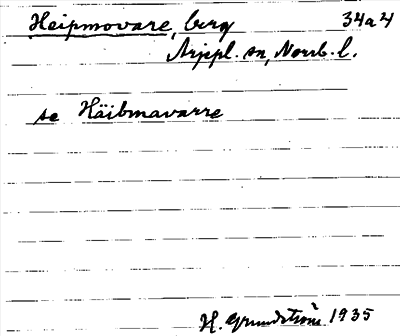 Heipmovare, berg 34a4
Arjepl. sn, Norrb. l.
se Häibmavarre
H. Grundström 1935